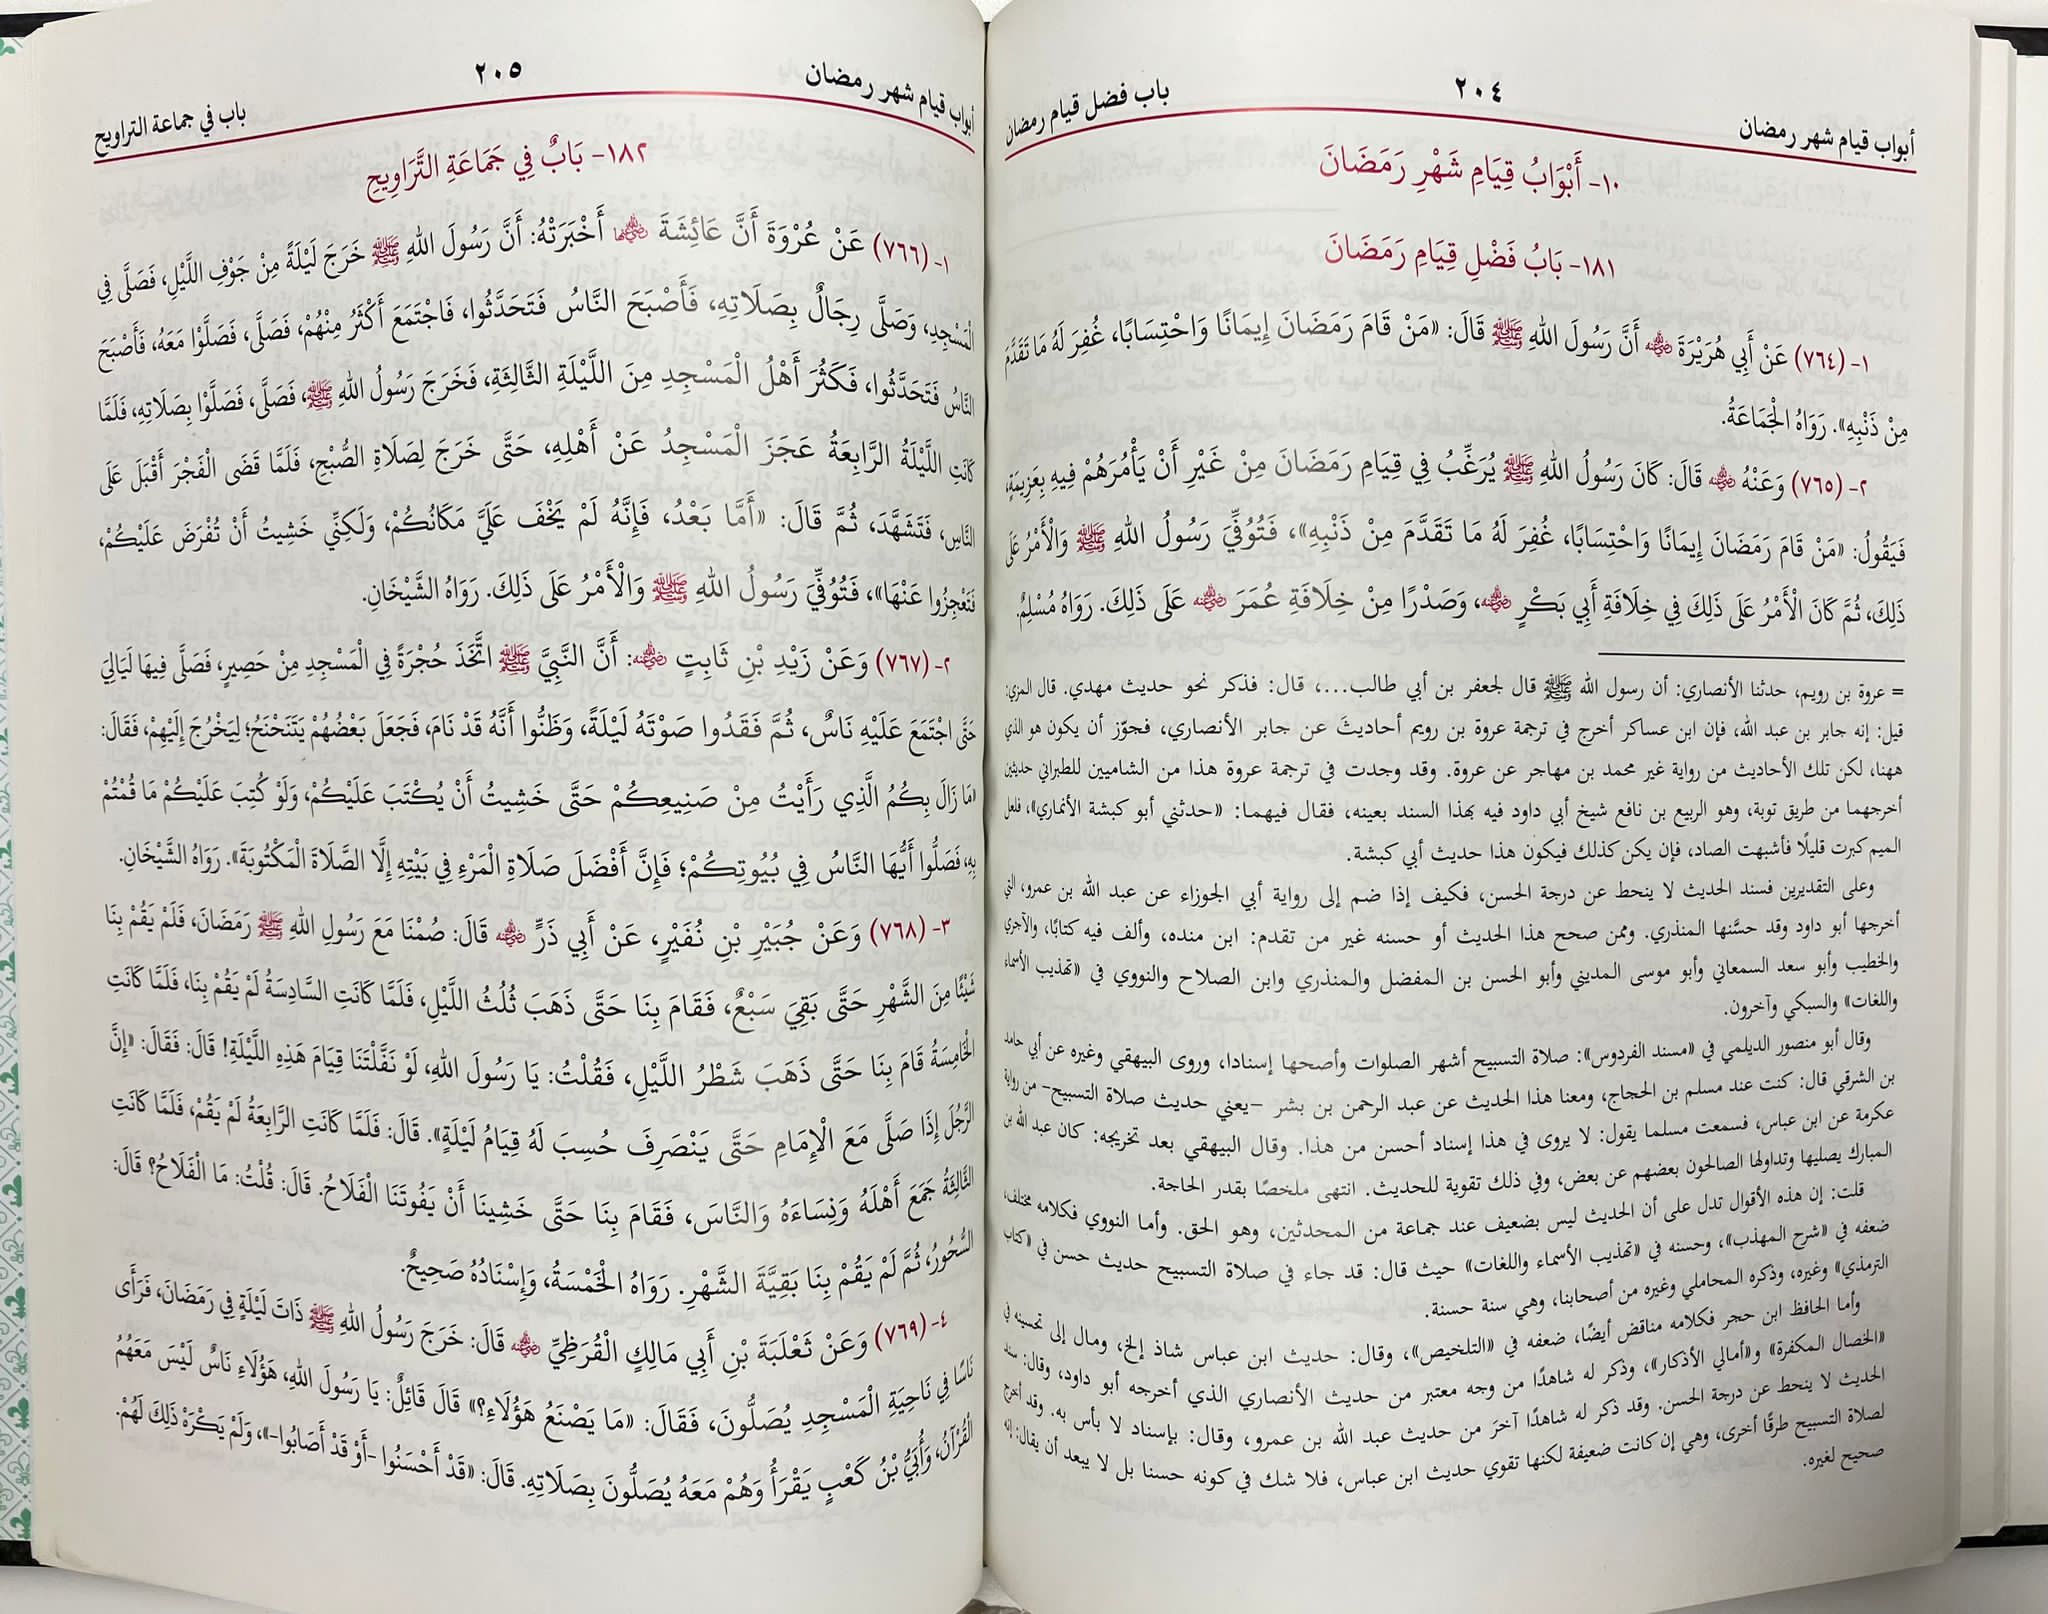 أبواب قيام شهر رمضان
٢٠٤
باب فضل قيام رمضان
١٠- أَبْوَابُ قِيَامِ شَهْرِ رَمَضَانَ
١٨١- بَابُ فَضْلِ قِيَامِ رَمَضَانَ
١- (٧٦٤) عَنْ أَبِي هُرَيْرَةَ ﵁ أَنَّ رَسُولَ اللهِ ﷺ قَالَ: «مَنْ قَامَ رَمَضَانَ إِيمَانًا وَاحْتِسَابًا، غُفِرَ لَهُ مَا تَقَدَّمَ
مِنْ ذَنْبِهِ». رَوَاهُ الْجَمَاعَةُ.
٢- (٧٦٥) وَعَنْهُ ﵁ قَالَ: كَانَ رَسُولُ اللهِ ﷺ يُرَغِّبُ فِي قِيَامِ رَمَضَانَ مِنْ غَيْرِ أَنْ يَأْمُرَهُمْ فِيهِ بِعَزِيمَةٍ،
فَيَقُولُ: «مَنْ قَامَ رَمَضَانَ إِيمَانًا وَاحْتِسَابًا، غُفِرَ لَهُ مَا تَقَدَّمَ مِنْ ذَنْبِهِ»، فَتُوُفِّيَ رَسُولُ اللهِ ﷺ وَالْأَمْرُ عَلَى
ذَلِكَ، ثُمَّ كَانَ الْأَمْرُ عَلَى ذَلِكَ فِي خِلَافَةِ أَبِي بَكْرٍ ﵁، وَصَدْرًا مِنْ خِلَافَةِ عُمَرَ ﵁ عَلَى ذَلِكَ. رَوَاهُ مُسْلِمٌ.
= عروة بن رويم، حدثنا الأنصاري: أن رسول الله ﷺ قال لجعفر بن أبي طالب...، قال: فذكر نحو حديث مهدي. قال المزي:
قيل: إنه جابر بن عبد الله، فإن ابن عساكر أخرج في ترجمة عروة بن رويم أحاديثَ عن جابر الأنصاري، فجوّز أن يكون هو الذي
ههنا، لكن تلك الأحاديث من رواية غير محمد بن مهاجر عن عروة. وقد وجدت في ترجمة عروة هذا من الشاميين للطبراني حديثين
أخرجهما من طريق توبة، وهو الربيع بن نافع شيخ أبي داود فيه بهذا السند بعينه، فقال فيهما: «حدثني أبو كبشة الأنماري»، فلعل
الميم كبرت قليلًا فأشبهت الصاد، فإن يكن كذلك فيكون هذا حديث أبي كبشة.
وعلى التقديرين فسند الحديث لا ينحط عن درجة الحسن، فكيف إذا ضم إلى رواية أبي الجوزاء عن عبد الله بن عمرو، التي
أخرجها أبو داود وقد حسَّنها المنذري. وممن صحح هذا الحديث أو حسنه غير من تقدم: ابن منده، وألف فيه كتابًا، والآجري
والخطيب وأبو سعد السمعاني وأبو موسى المديني وأبو الحسن بن المفضل والمنذري وابن الصلاح والنووي في «تهذيب الأسماء
واللغات» والسبكي وآخرون.
وقال أبو منصور الديلمي في «مسند الفردوس»: صلاة التسبيح أشهر الصلوات وأصحها إسنادا، وروى البيهقي وغيره عن أبي حامد
بن الشرقي قال: كنت عند مسلم بن الحجاج، ومعنا هذا الحديث عن عبد الرحمن بن بشر –يعني حديث صلاة التسبيح– من رواية
عكرمة عن ابن عباس، فسمعت مسلما يقول: لا يروى في هذا إسناد أحسن من هذا. وقال البيهقي بعد تخريجه: كان عبد الله بن
المبارك يصليها وتداولها الصالحون بعضهم عن بعض، وفي ذلك تقوية للحديث. انتهى ملخصًا بقدر الحاجة.
قلت: إن هذه الأقوال تدل على أن الحديث ليس بضعيف عند جماعة من المحدثين، وهو الحق. وأما النووي فكلامه مختلف،
ضعفه في «شرح المهذب»، وحسنه في «تهذيب الأسماء واللغات» حيث قال: قد جاء في صلاة التسبيح حديث حسن في «كتاب
الترمذي» وغيره، وذكره المحاملي وغيره من أصحابنا، وهي سنة حسنة.
وأما الحافظ ابن حجر فكلامه مناقض أيضًا، ضعفه في «التلخيص»، وقال: حديث ابن عباس شاذ إلخ، ومال إلى تحسينه في
«الخصال المكفرة» و«أمالي الأذكار»، وذكر له شاهدًا من وجه معتبر من حديث الأنصاري الذي أخرجه أبو داود، وقال: سند
الحديث لا ينحط عن درجة الحسن. وقد ذكر له شاهدًا آخرَ من حديث عبد الله بن عمرو، وقال: بإسناد لا بأس به. وقد أخرج
لصلاة التسبيح طرقًا أخرى، وهي إن كانت ضعيفة لكنها تقوي حديث ابن عباس، فلا شك في كونه حسنا بل لا يبعد أن يقال: إنه
صحيح لغيره.
أبواب قيام شهر رمضان
٢٠٥
باب في جماعة التراويح
١٨٢- بَابٌ فِي جَمَاعَةِ التَّرَاوِيحِ
١- (٧٦٦) عَنْ عُرْوَةَ أَنَّ عَائِشَةَ ﵂ أَخْبَرَتْهُ: أَنَّ رَسُولَ اللهِ ﷺ خَرَجَ لَيْلَةً مِنْ جَوْفِ اللَّيْلِ، فَصَلَّى فِي
الْمَسْجِدِ، وَصَلَّى رِجَالٌ بِصَلَاتِهِ، فَأَصْبَحَ النَّاسُ فَتَحَدَّثُوا، فَاجْتَمَعَ أَكْثَرُ مِنْهُمْ، فَصَلَّى، فَصَلَّوْا مَعَهُ، فَأَصْبَحَ
النَّاسُ فَتَحَدَّثُوا، فَكَثُرَ أَهْلُ الْمَسْجِدِ مِنَ اللَّيْلَةِ الثَّالِثَةِ، فَخَرَجَ رَسُولُ اللهِ ﷺ، فَصَلَّى، فَصَلَّوْا بِصَلَاتِهِ، فَلَمَّا
كَانَتِ اللَّيْلَةُ الرَّابِعَةُ عَجَزَ الْمَسْجِدُ عَنْ أَهْلِهِ، حَتَّى خَرَجَ لِصَلَاةِ الصُّبْحِ، فَلَمَّا قَضَى الْفَجْرَ أَقْبَلَ عَلَى
النَّاسِ، فَتَشَهَّدَ، ثُمَّ قَالَ: «أَمَّا بَعْدُ، فَإِنَّهُ لَمْ يَخْفَ عَلَيَّ مَكَانُكُمْ، وَلَكِنِّي خَشِيتُ أَنْ تُفْرَضَ عَلَيْكُمْ،
فَتَعْجِزُوا عَنْهَا»، فَتُوُفِّيَ رَسُولُ اللهِ ﷺ وَالْأَمْرُ عَلَى ذَلِكَ. رَوَاهُ الشَّيْخَانِ.
٢- (٧٦٧) وَعَنْ زَيْدِ بْنِ ثَابِتٍ ﵁: أَنَّ النَّبِيَّ ﷺ اتَّخَذَ حُجْرَةً فِي الْمَسْجِدِ مِنْ حَصِيرٍ، فَصَلَّى فِيهَا لَيَالِيَ
حَتَّى اجْتَمَعَ عَلَيْهِ نَاسٌ، ثُمَّ فَقَدُوا صَوْتَهُ لَيْلَةً، وَظَنُّوا أَنَّهُ قَدْ نَامَ، فَجَعَلَ بَعْضُهُمْ يَتَنَحْنَحُ؛ لِيَخْرُجَ إِلَيْهِمْ، فَقَالَ:
«مَا زَالَ بِكُمُ الَّذِي رَأَيْتُ مِنْ صَنِيعِكُمْ حَتَّى خَشِيتُ أَنْ يُكْتَبَ عَلَيْكُمْ، وَلَوْ كُتِبَ عَلَيْكُمْ مَا قُمْتُمْ
بِهِ، فَصَلُّوا أَيُّهَا النَّاسُ فِي بُيُوتِكُمْ؛ فَإِنَّ أَفْضَلَ صَلَاةِ الْمَرْءِ فِي بَيْتِهِ إِلَّا الصَّلَاةَ الْمَكْتُوبَةَ». رَوَاهُ الشَّيْخَانِ.
٣- (٧٦٨) وَعَنْ جُبَيْرِ بْنِ نُفَيْرٍ، عَنْ أَبِي ذَرٍّ ﵁ قَالَ: صُمْنَا مَعَ رَسُولِ اللهِ ﷺ رَمَضَانَ، فَلَمْ يَقُمْ بِنَا
شَيْئًا مِنَ الشَّهْرِ حَتَّى بَقِيَ سَبْعٌ، فَقَامَ بِنَا حَتَّى ذَهَبَ ثُلُثُ اللَّيْلِ، فَلَمَّا كَانَتِ السَّادِسَةُ لَمْ يَقُمْ بِنَا، فَلَمَّا كَانَتِ
الْخَامِسَةُ قَامَ بِنَا حَتَّى ذَهَبَ شَطْرُ اللَّيْلِ، فَقُلْتُ: يَا رَسُولَ اللهِ، لَوْ نَفَّلْتَنَا قِيَامَ هَذِهِ اللَّيْلَةِ! قَالَ: فَقَالَ: «إِنَّ
الرَّجُلَ إِذَا صَلَّى مَعَ الْإِمَامِ حَتَّى يَنْصَرِفَ حُسِبَ لَهُ قِيَامُ لَيْلَةٍ». قَالَ: فَلَمَّا كَانَتِ الرَّابِعَةُ لَمْ يَقُمْ، فَلَمَّا كَانَتِ
الثَّالِثَةُ جَمَعَ أَهْلَهُ وَنِسَاءَهُ وَالنَّاسَ، فَقَامَ بِنَا حَتَّى خَشِينَا أَنْ يَفُوتَنَا الْفَلَاحُ. قَالَ: قُلْتُ: مَا الْفَلَاحُ؟ قَالَ:
السُّحُورُ، ثُمَّ لَمْ يَقُمْ بِنَا بَقِيَّةَ الشَّهْرِ. رَوَاهُ الْخَمْسَةُ، وَإِسْنَادُهُ صَحِيحٌ.
٤- (٧٦٩) وَعَنْ ثَعْلَبَةَ بْنِ أَبِي مَالِكٍ الْقُرَظِيِّ ﵁ قَالَ: خَرَجَ رَسُولُ اللهِ ﷺ ذَاتَ لَيْلَةٍ فِي رَمَضَانَ، فَرَأَى
نَاسًا فِي نَاحِيَةِ الْمَسْجِدِ يُصَلُّونَ، فَقَالَ: «مَا يَصْنَعُ هَؤُلَاءِ؟» قَالَ قَائِلٌ: يَا رَسُولَ اللهِ، هَؤُلَاءِ نَاسٌ لَيْسَ مَعَهُمُ
الْقُرْآنُ، وَأُبَيُّ بْنُ كَعْبٍ يَقْرَأُ وَهُمْ مَعَهُ يُصَلُّونَ بِصَلَاتِهِ. قَالَ: «قَدْ أَحْسَنُوا -أَوْ قَدْ أَصَابُوا-»، وَلَمْ يَكْرَهْ ذَلِكَ لَهُمْ.